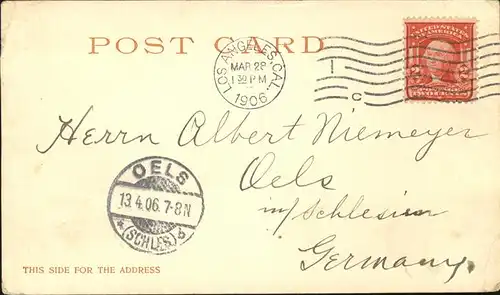 POST CARD
LOS ANGELES, CAL.
MAR 28
1 30 PM
1906
1
C
UNITED STATES
OF AMERICA
2 2
TWO CENTS
Herrn Albert Niemeyer
Oels
in/Schlesien
Germany.
OELS
13.4.06.7-8N
*(SCHLES)*
THIS SIDE FOR THE ADDRESS